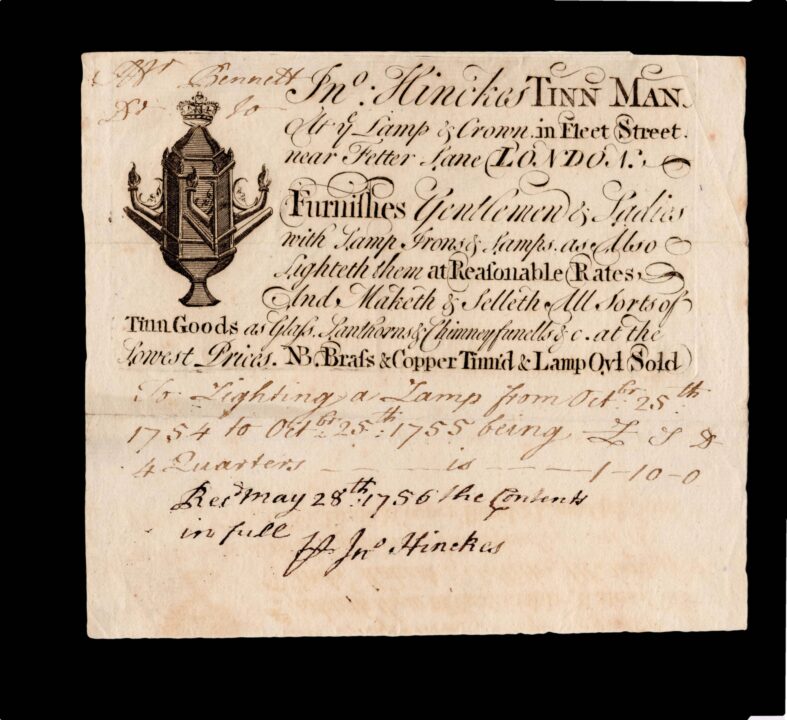 Mr Bennett
Dr to
Jno: Hinckes TINN MAN.
At ye Lamp & Crown in Fleet Street.
near Fetter Lane LONDON.
Furniſhes Gentlemen & Ladies
with Lamp Irons & Lamps. as Also
Lighteth them at Reaſonable Rates
And Maketh & Selleth All Sorts of
Tinn Goods as Glaſs. Lanthorns & Chimneyfunells &c. at the
Lowest Prices. NB. Braſs & Copper Tinn'd & Lamp Oyl Sold
To Lighting a Lamp from Octbr: 25th:
1754 to Octbr: 25th: 1755 being £ S D
4 Quarters — — — is — — — 1-10-0
Recd May 28th 1756 the Contents
in full
Jno Hinckes